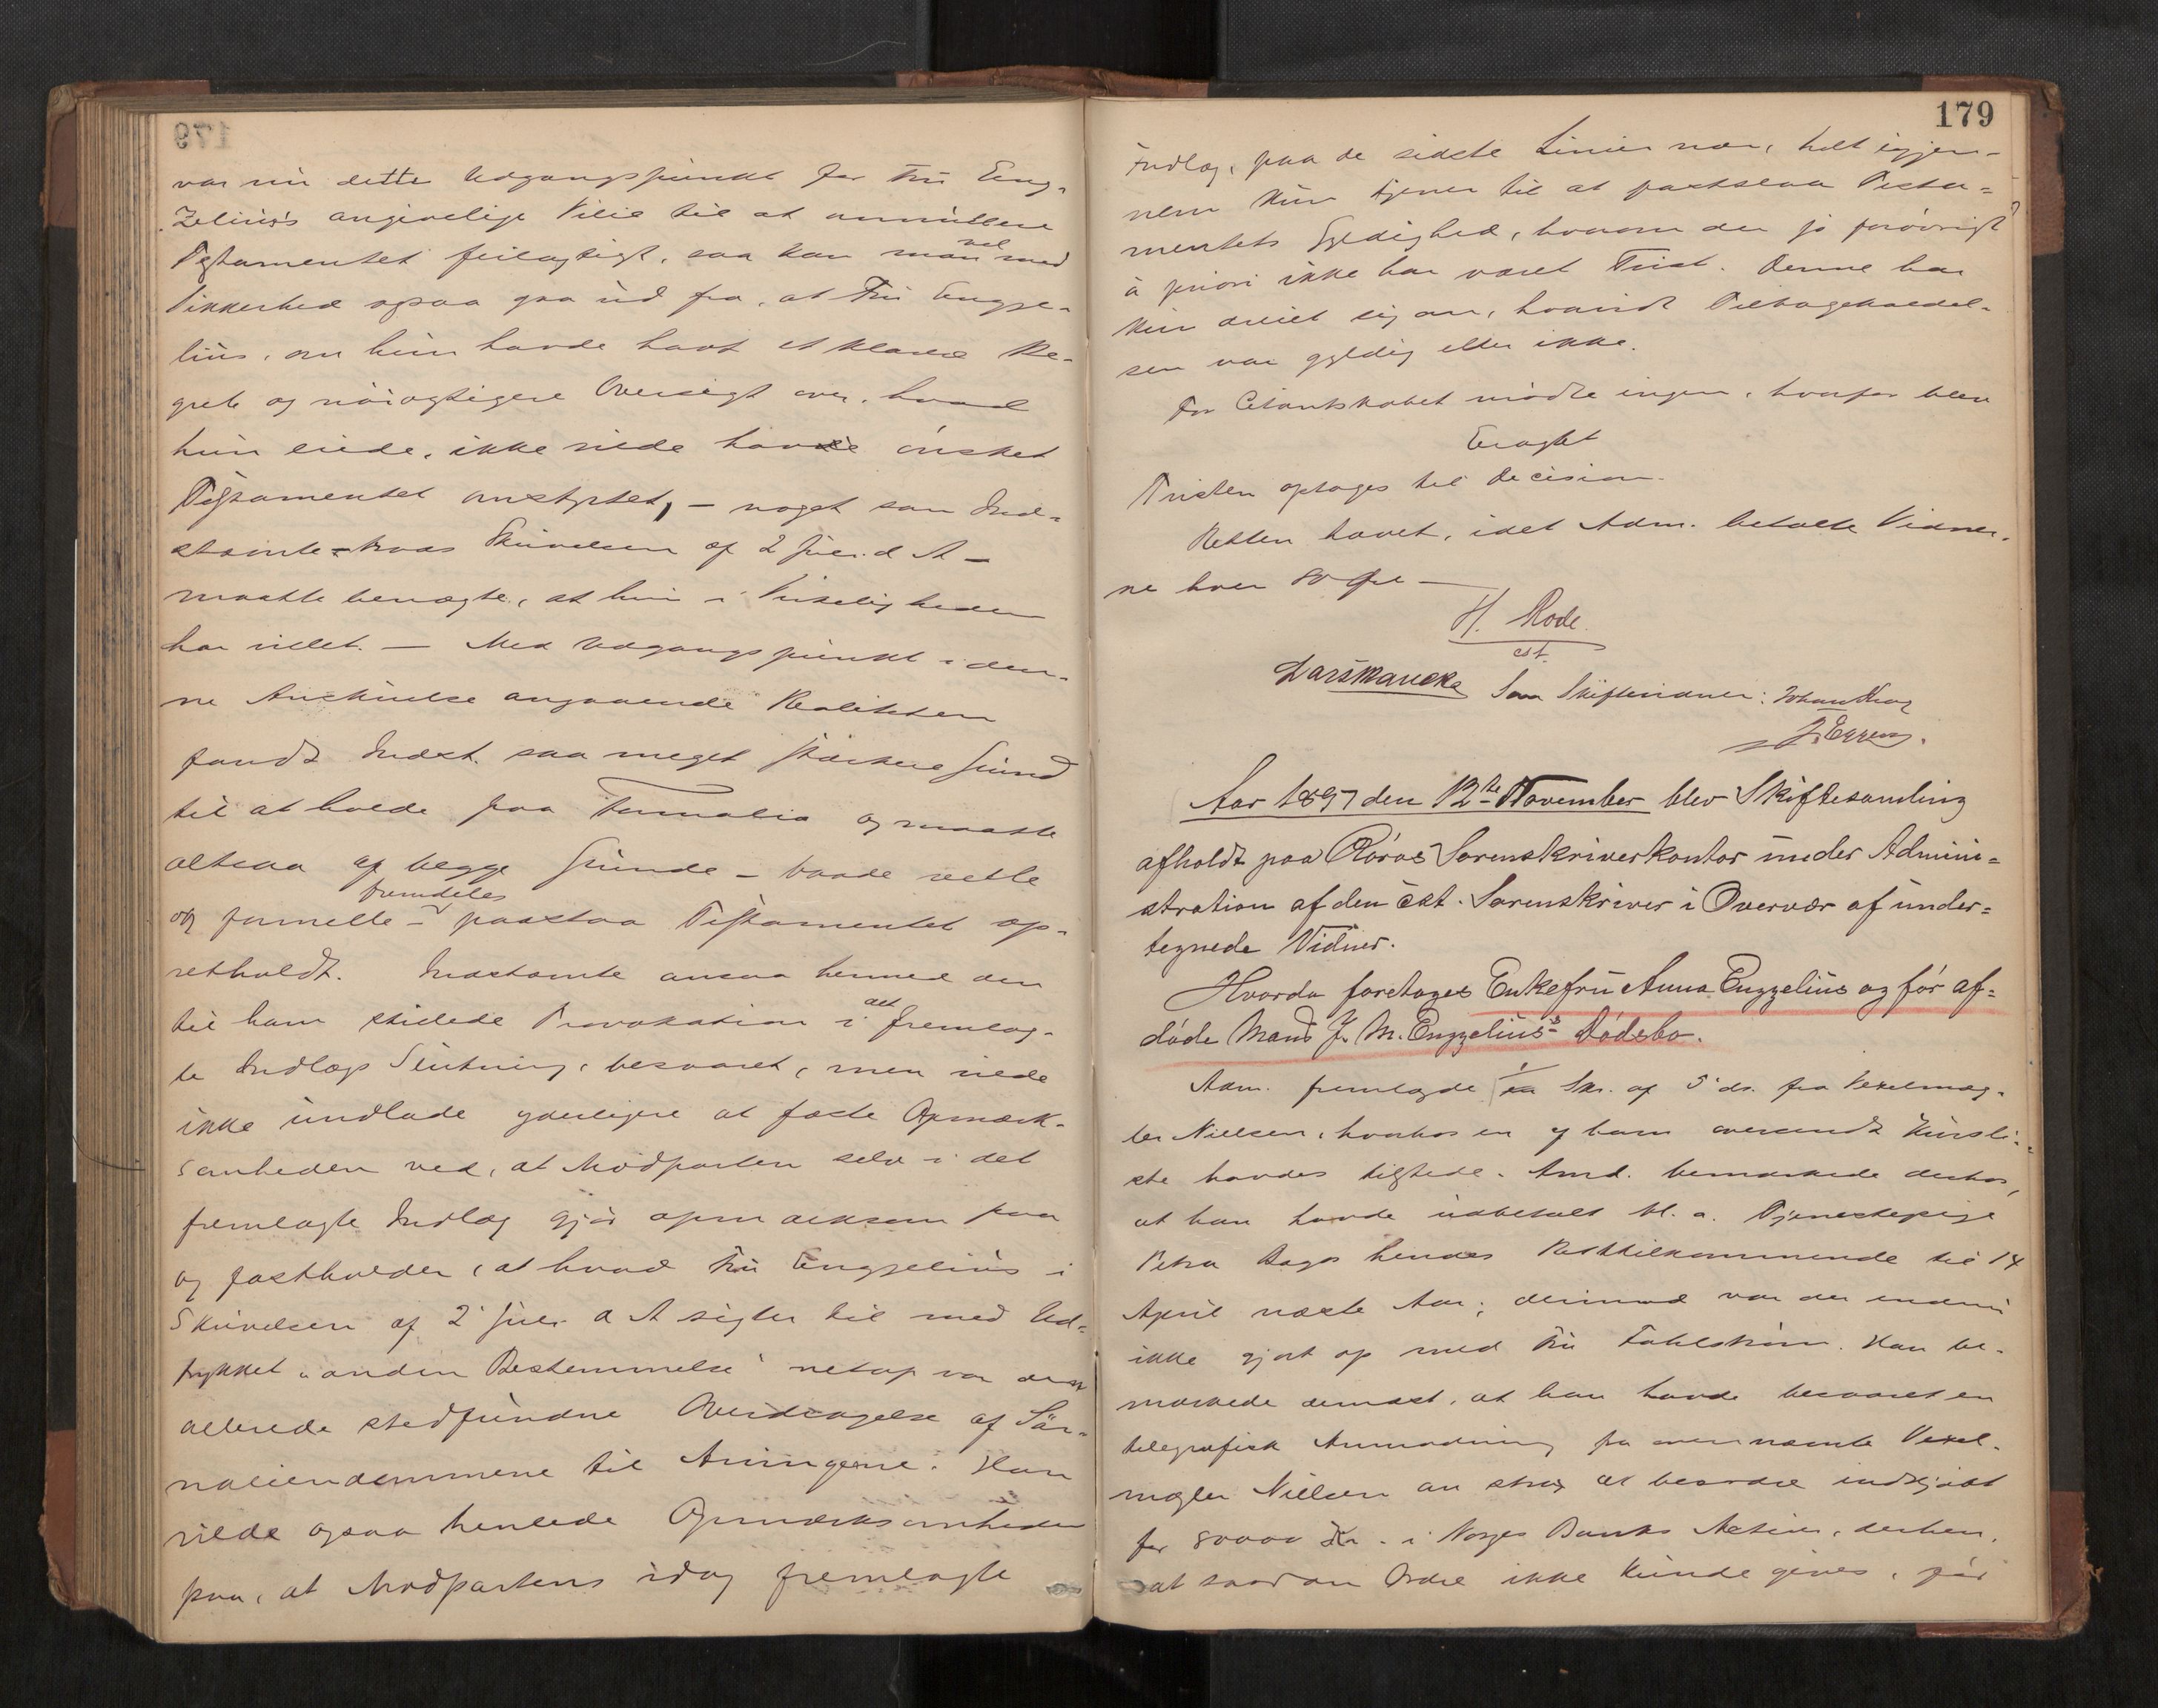 var nu dette Udgangspunkt for Fru Eng-
zelius's angivelige Vilie til at annullere
Testamentet feilagtigt, saa kan man vel med
Sikkerhed ogsaa gaa ud fra, at Fru Engze-
lius, om hun havde havt et klarere Be-
greb og nöiagtigere Oversigt over, hvad
hun eiede, ikke vilde havde önsket
Testamentet omstyrtet, – noget som Ind-
stævnte trods Skrivelsen af 2 Juli d. A –
maatte benægte, at hun i Virkeligheden
har villet. – Med Udgangspunkt i den-
ne Anskuelse angaaende Realiteten
fandt Indst. saa meget stærkere Grund
til at holde paa Formalia og maatte
altsaa af begge Grunde – baade reelle
og formelle – fremdeles paastaa Testamentet op-
retholdt. Indstævnte ansaa hermed den
til ham stilede Provokation i det fremlag-
te Indlægs Slutning, besvaret, men vilde
ikke undlade yderligere at fæste Opmærk-
somheden ved, at Modparten selv i det
fremlagte Indlæg gjør opmærksom paa
og fastholder, at hvad Fru Engzelius i
Skrivelsen af 2' Juli d A sigter til med Ud-
trykket "anden Bestemmelse" netop var den
allerede stedfundne Overdragelse af
til Arvingerne. Han
vilde ogsaa henlede Opmærksomheden
paa, at Modpartens idag fremlagte
179
Indlæg, paa de sidste Linier nær, helt igjen-
nem kun tjener til at fastslaa Testa-
mentets Gyldighed, hvorom der jo forøvrigt
à priori ikke har været Tvist. Denne har
kun dreiet sig om, hvorvidt Tilbagekaldel-
sen var gyldig eller ikke.
For Citantskabet mödte ingen, hvorfor blev
Eragtet
Tvisten optages til Decision.
Retten hævet, idet Adm. betalte Vidner-
ne hver 80 Øre –
H. Rode
cst.
Som Skiftevidner:
Aar 1897 den 12te November blev Skiftesamling
afholdt paa Röros Sorenskriverkontor under Admini-
stration af den cst. Sorenskriver i Overvær af under-
tegnede Vidner.
Hvorda foretoges Enkefru Anna Engzelius og för af-
döde Mand J. M. Engzelius's Dödsbo.
Adm. fremlagde en Skr. af 5' ds. fra Vexelmæg-
ler Nielsen, hvorhos en af ham oversendt Kursli-
ste havdes tilstede. Amd. bemærkede derhos,
at han havde udbetalt bl. a. Tjenestepige
Petra hendes Resttilkommende til 14
April næste Aar; derimod var der endnu
ikke gjort op med Fru Fahlström. Han be-
mærkede dernæst, at han havde besvaret en
telegrafisk Anmodning fra ovennævnte Vexel-
mægler Nielsen om strax at besvare indkjöbt
for 80000 Kr. i Norges Banks Aktier, derhen,
at saadan Ordre ikke kunde gives, för